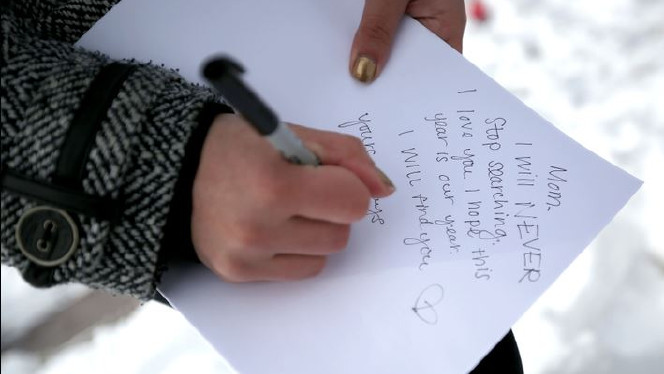 Mom.
I will NEVER
Stop searching.
I love you I hope this
year is our year.
I will find you